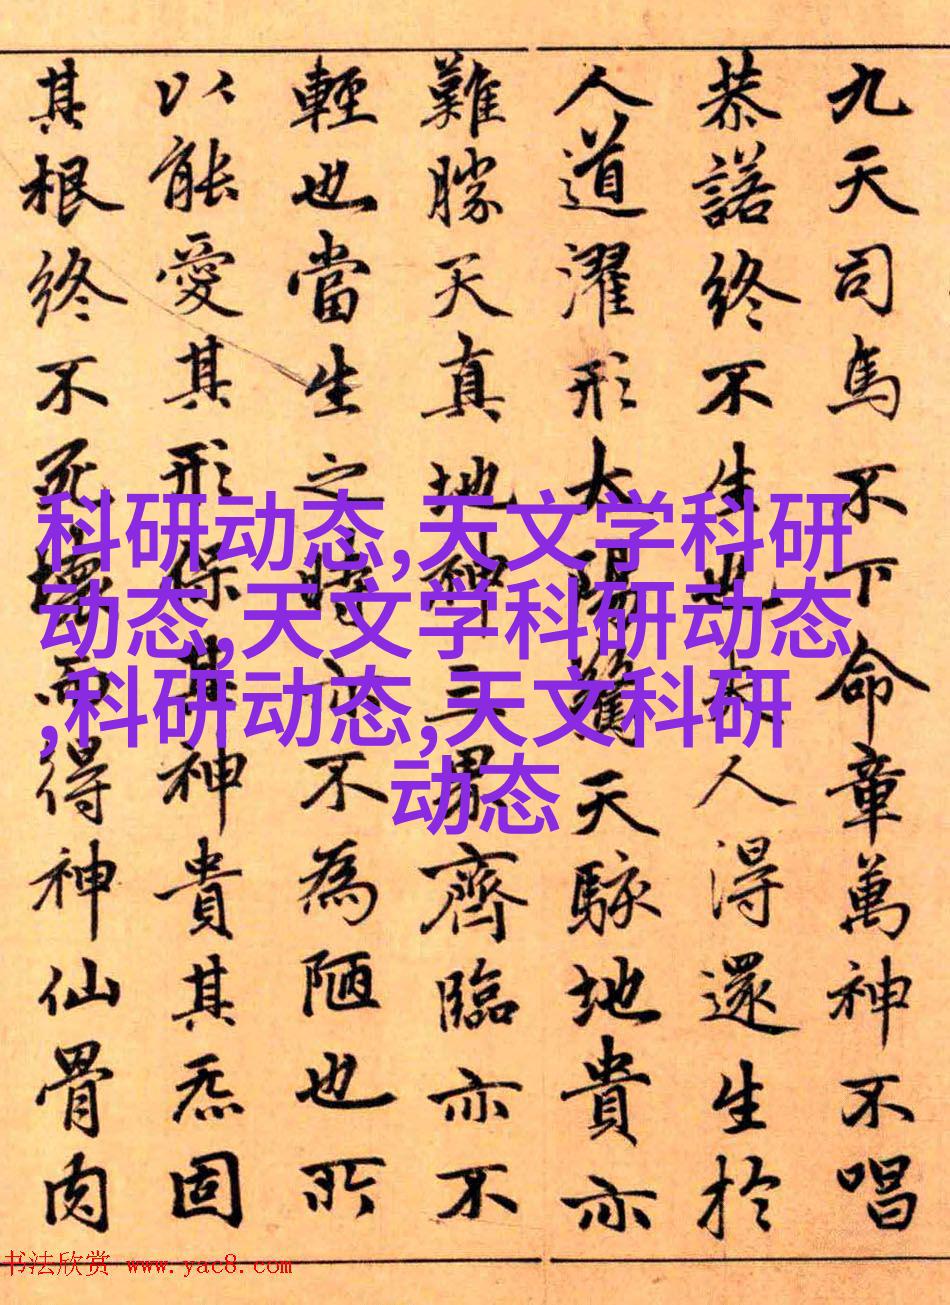 九天司馬不下命章萬神不唱
恭諾終不生此夫人得還生於
人道濯形太陽驚天駭地貴亦
難勝天真地神三界齊臨亦不
輕也當生之時亦不為陋也所
以能愛其形保其神貴其炁固
其根終不死壞而得神仙骨肉
科研动态,天文学科研
动态,天文学科研动态
,科研动态,天文科研
动态
书法欣赏 www.yac8.com